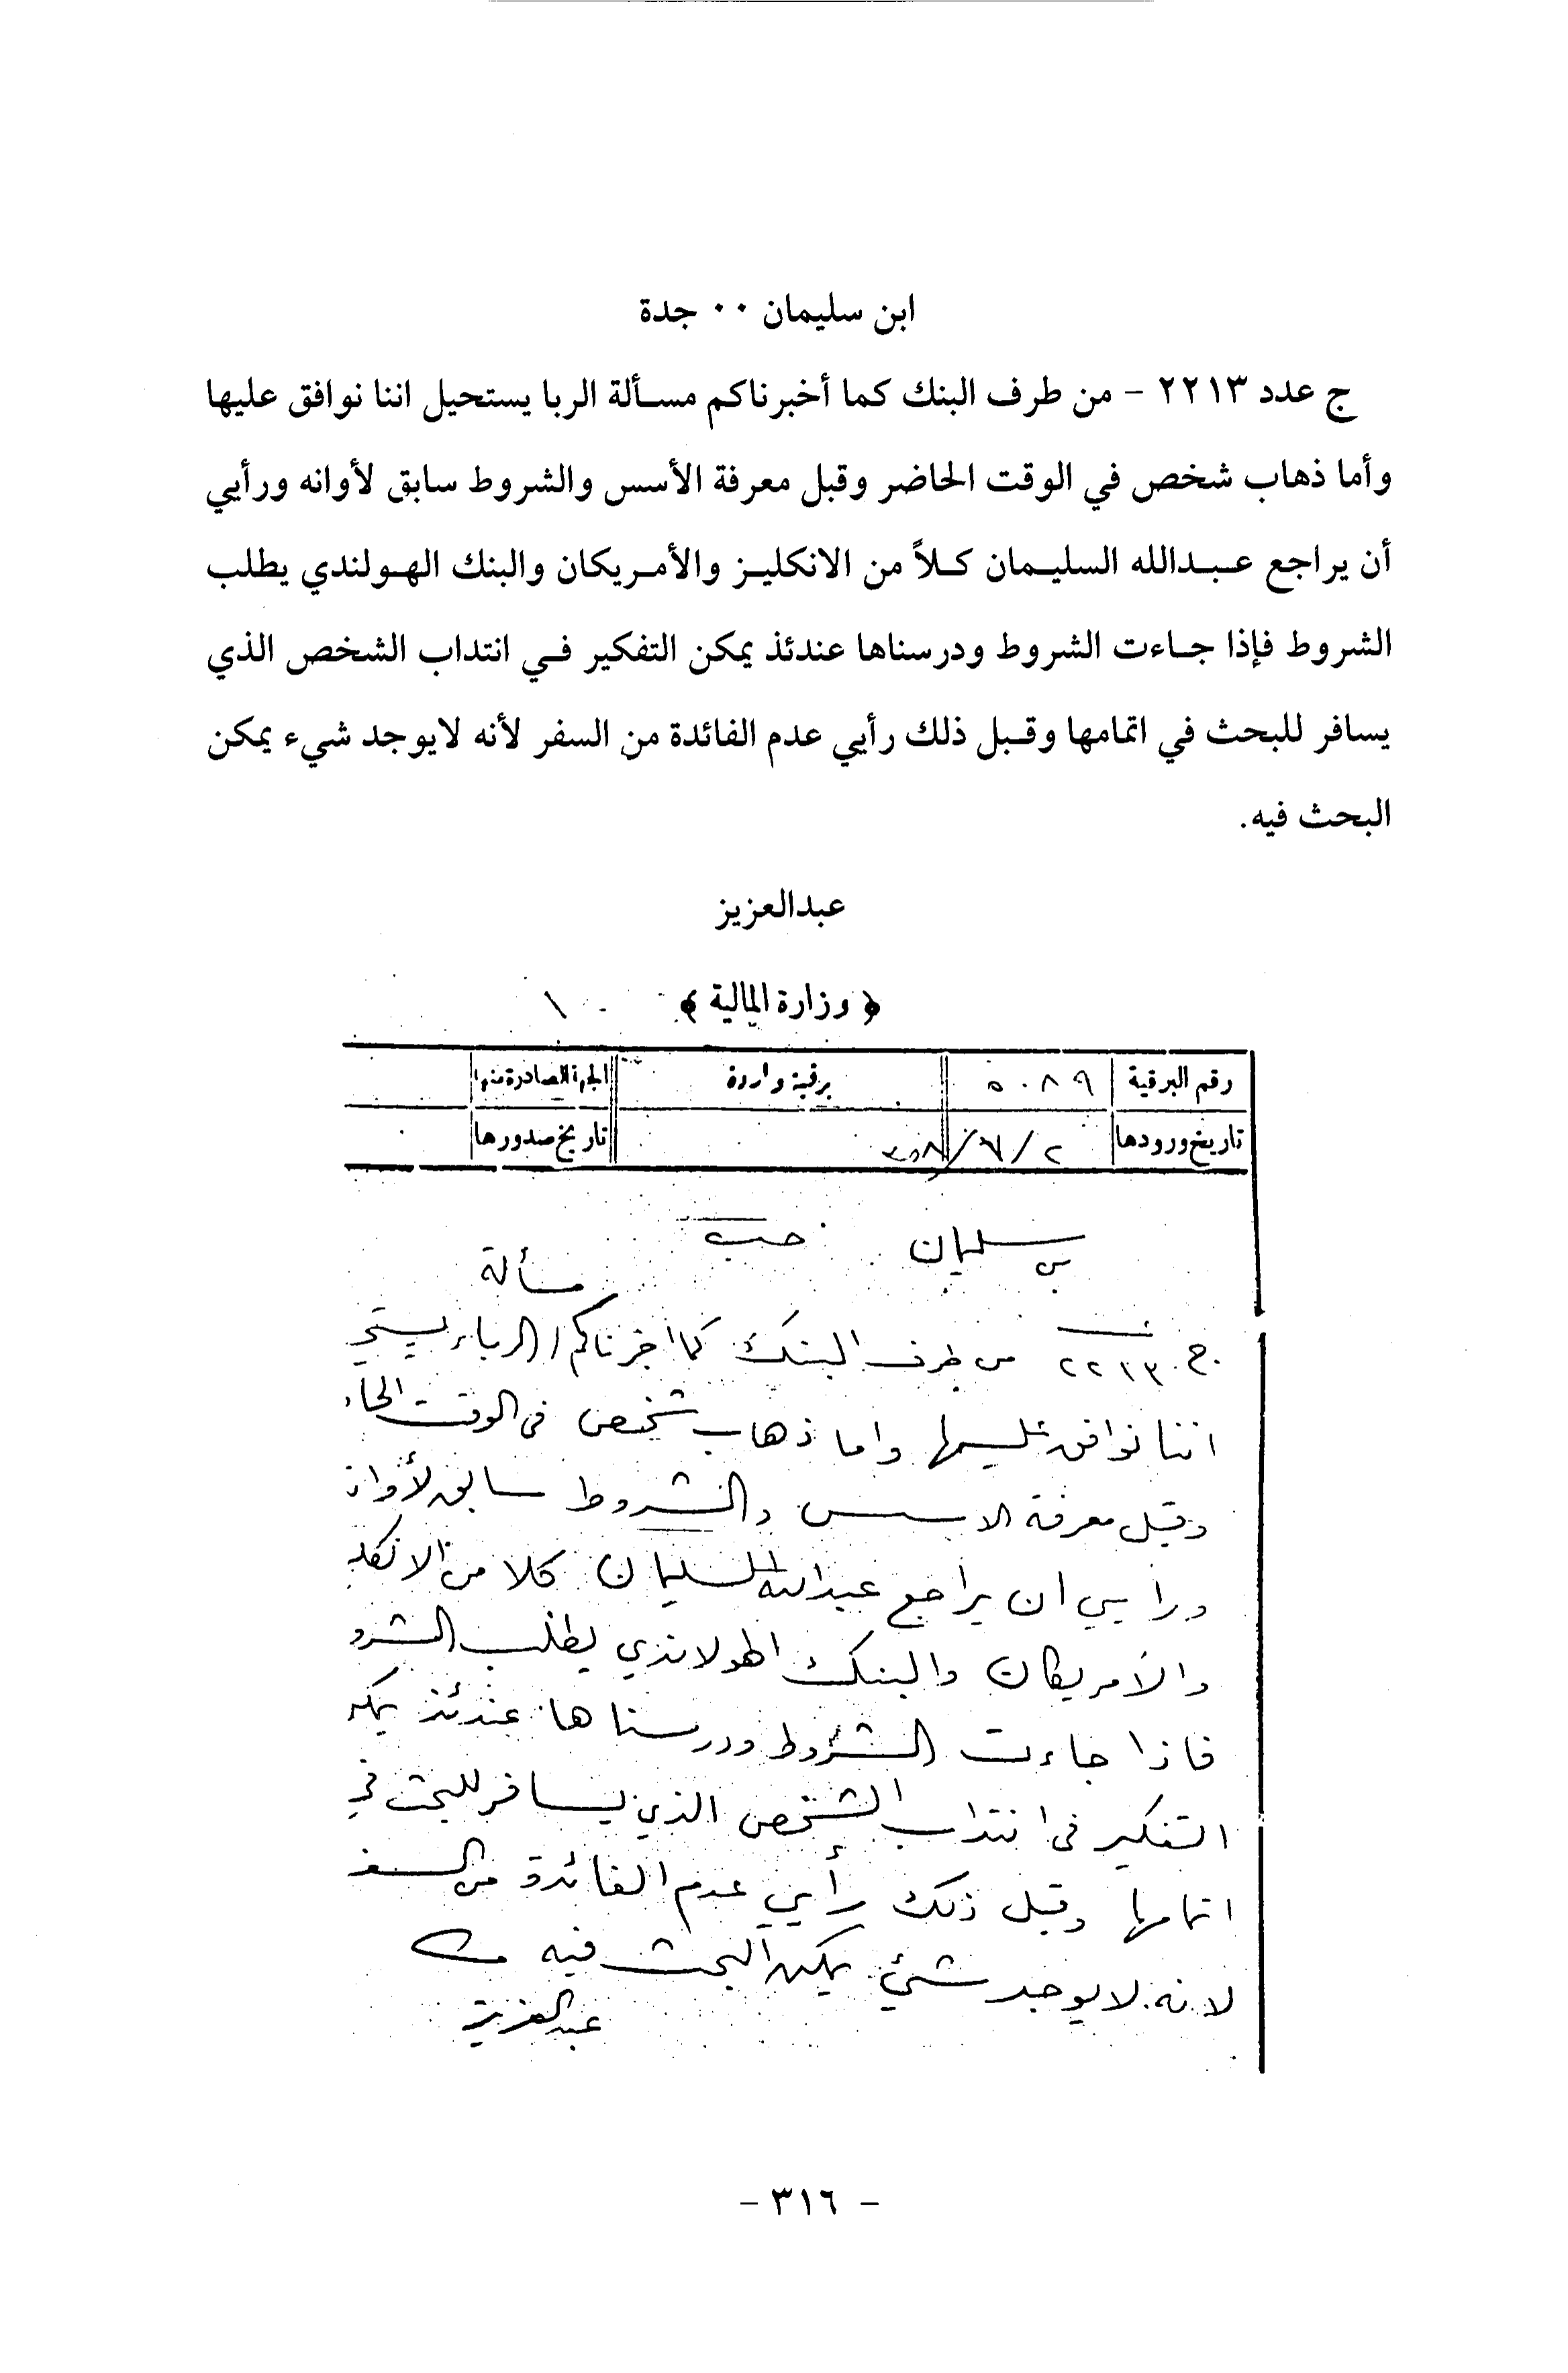 ابن سليمان ٠٠ جدة
ج عدد ٢٢١٣ - من طرف البنك كما أخبرناكم مسألة الربا يستحيل اننا نوافق عليها
وأما ذهاب شخص في الوقت الحاضر وقبل معرفة الأسس والشروط سابق لأوانه ورأيي
أن يراجع عبدالله السليمان كلاً من الانكليز والأمريكان والبنك الهولندي يطلب
الشروط فإذا جاءت الشروط ودرسناها عندئذ يمكن التفكير في انتداب الشخص الذي
يسافر للبحث في اتمامها وقبل ذلك رأيي عدم الفائدة من السفر لأنه لايوجد شيء يمكن
البحث فيه.
عبدالعزيز
﴿ وزارة المالية ﴾ ١
رقم البرقية ٥٠٨٩ برقية واردة الجهة الصادرة منها
تاريخ ورودها ٢/٧/٣٥٨ تاريخ صدورها
بن سليمان
مسألة
ج ٢٢١٣ من طرف البنك كما اخبرناكم الرباء يستحي
اننا نوافق عليها واما ذهاب شخص في الوقت الحا
وقبل معرفة الاسس والشروط سابق لأوا
ورايي ان يراجع عبدالله السليمان كلا من الانكلـ
والأمريكان والبنك الهولاندي يطلب الشرو
فاذا جاءت الشروط ودرسناها عندئذ يمكـ
التفكير في انتداب الشخص الذي يسافر للبحث في
اتمامها وقبل ذلك رأيي عدم الفائدة من السفـ
لانه لايوجد شيئ يمكن البحث فيه
عبدالعزيز
- ٣١٦ -